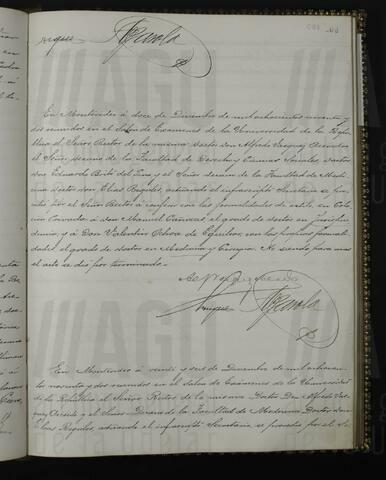 Azarola
En Montevideo á doce de Diciembre de mil ochocientos noventa y
dos reunidos en el Salon de Examenes de la Universidad de la Repú-
blica el Señor Rector de la misma Doctor don Alfredo Vasquez Acevedo
el Señor decano de la Facultad de Derecho y Ciencias Sociales, doctor
don Eduardo Brito del Pino y el Señor decano de la Facultad de Medi-
cina doctor don Elias Regules, actuando el infrascripto Secretario se pro-
cedió por el Señor Rector á conferir con las formalidades de estilo en
á don Manuel el grado de doctor en jurispru-
dencia, y á Don Valentin Ochoa de con las propias formali-
dades el grado de doctor en Medicina y Cirugia. No siendo para mas
el acto se dió por terminado.
Azarola
En Montevideo á veinti y seis de Diciembre de mil ochocien-
tos noventa y dos reunidos en el Salon de Exámenes de la Universidad
de la República el Señor Rector de la misma Doctor Don Alfredo Vas-
quez Acevedo y el Señor Decano de la Facultad de Medicina Doctor don
Elias Regules, actuando el infrascripto Secretario se procedió por el Se-
AGU